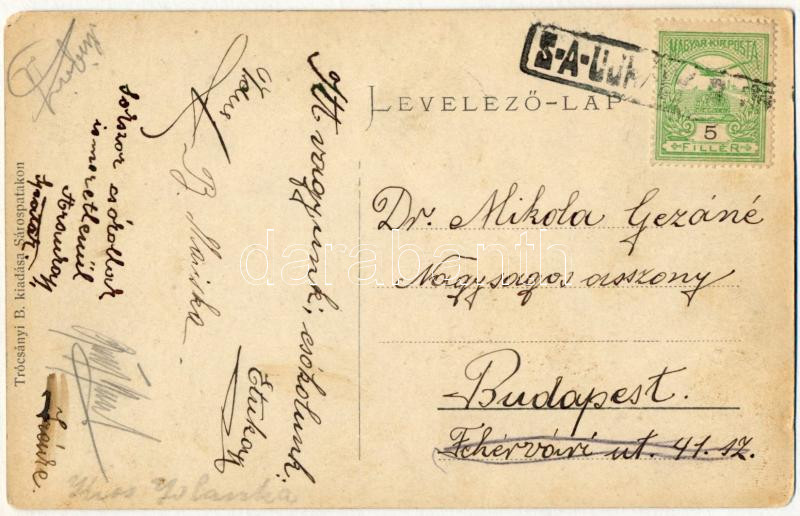 LEVELEZŐ-LAP
S-A-UJH
MAGYAR·KIR·POSTA
5
FILLÉR
Dr. Mikola Gezáné
Nagyságos asszony
Budapest.
Fehérvári út. 41. sz.
Itt vagyunk, csókolunk.
Etukay
B. Mariska
Sokszor csókollak
ismeretlenül
Aranka
Kiss Jolánka
Trócsányi B. kiadása Sárospatakon
darabanth